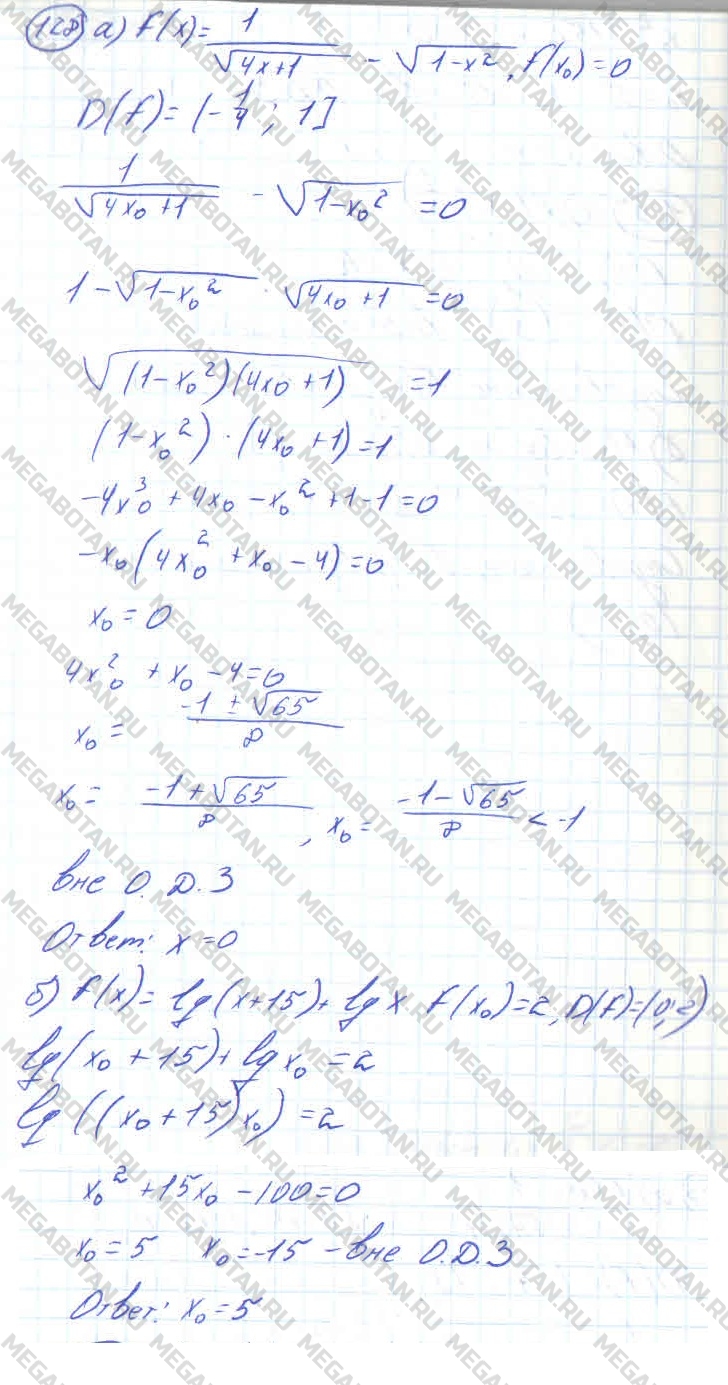 128) а) f(x) = 1/√(4x+1) − √(1−x²), f(x₀) = 0
D(f) = (−1/4; 1]
1/√(4x₀+1) − √(1−x₀²) = 0
1 − √(1−x₀²) · √(4x₀+1) = 0
√((1−x₀²)(4x₀+1)) = 1
(1−x₀²) · (4x₀+1) = 1
−4x₀³ + 4x₀ − x₀² + 1 − 1 = 0
−x₀(4x₀² + x₀ − 4) = 0
x₀ = 0
4x₀² + x₀ − 4 = 0
x₀ = (−1 ± √65)/8
x₀ = (−1 + √65)/8, x₀ = (−1 − √65)/8 < −1
вне О.Д.З
Ответ: x = 0
б) f(x) = lg(x+15) + lg x f(x₀) = 2, D(f) = (0;
lg(x₀ + 15) + lg x₀ = 2
lg((x₀ + 15)x₀) = 2
x₀² + 15x₀ − 100 = 0
x₀ = 5 x₀ = −15 – вне О.Д.З
Ответ: x₀ = 5
MEGABOTAN.RU